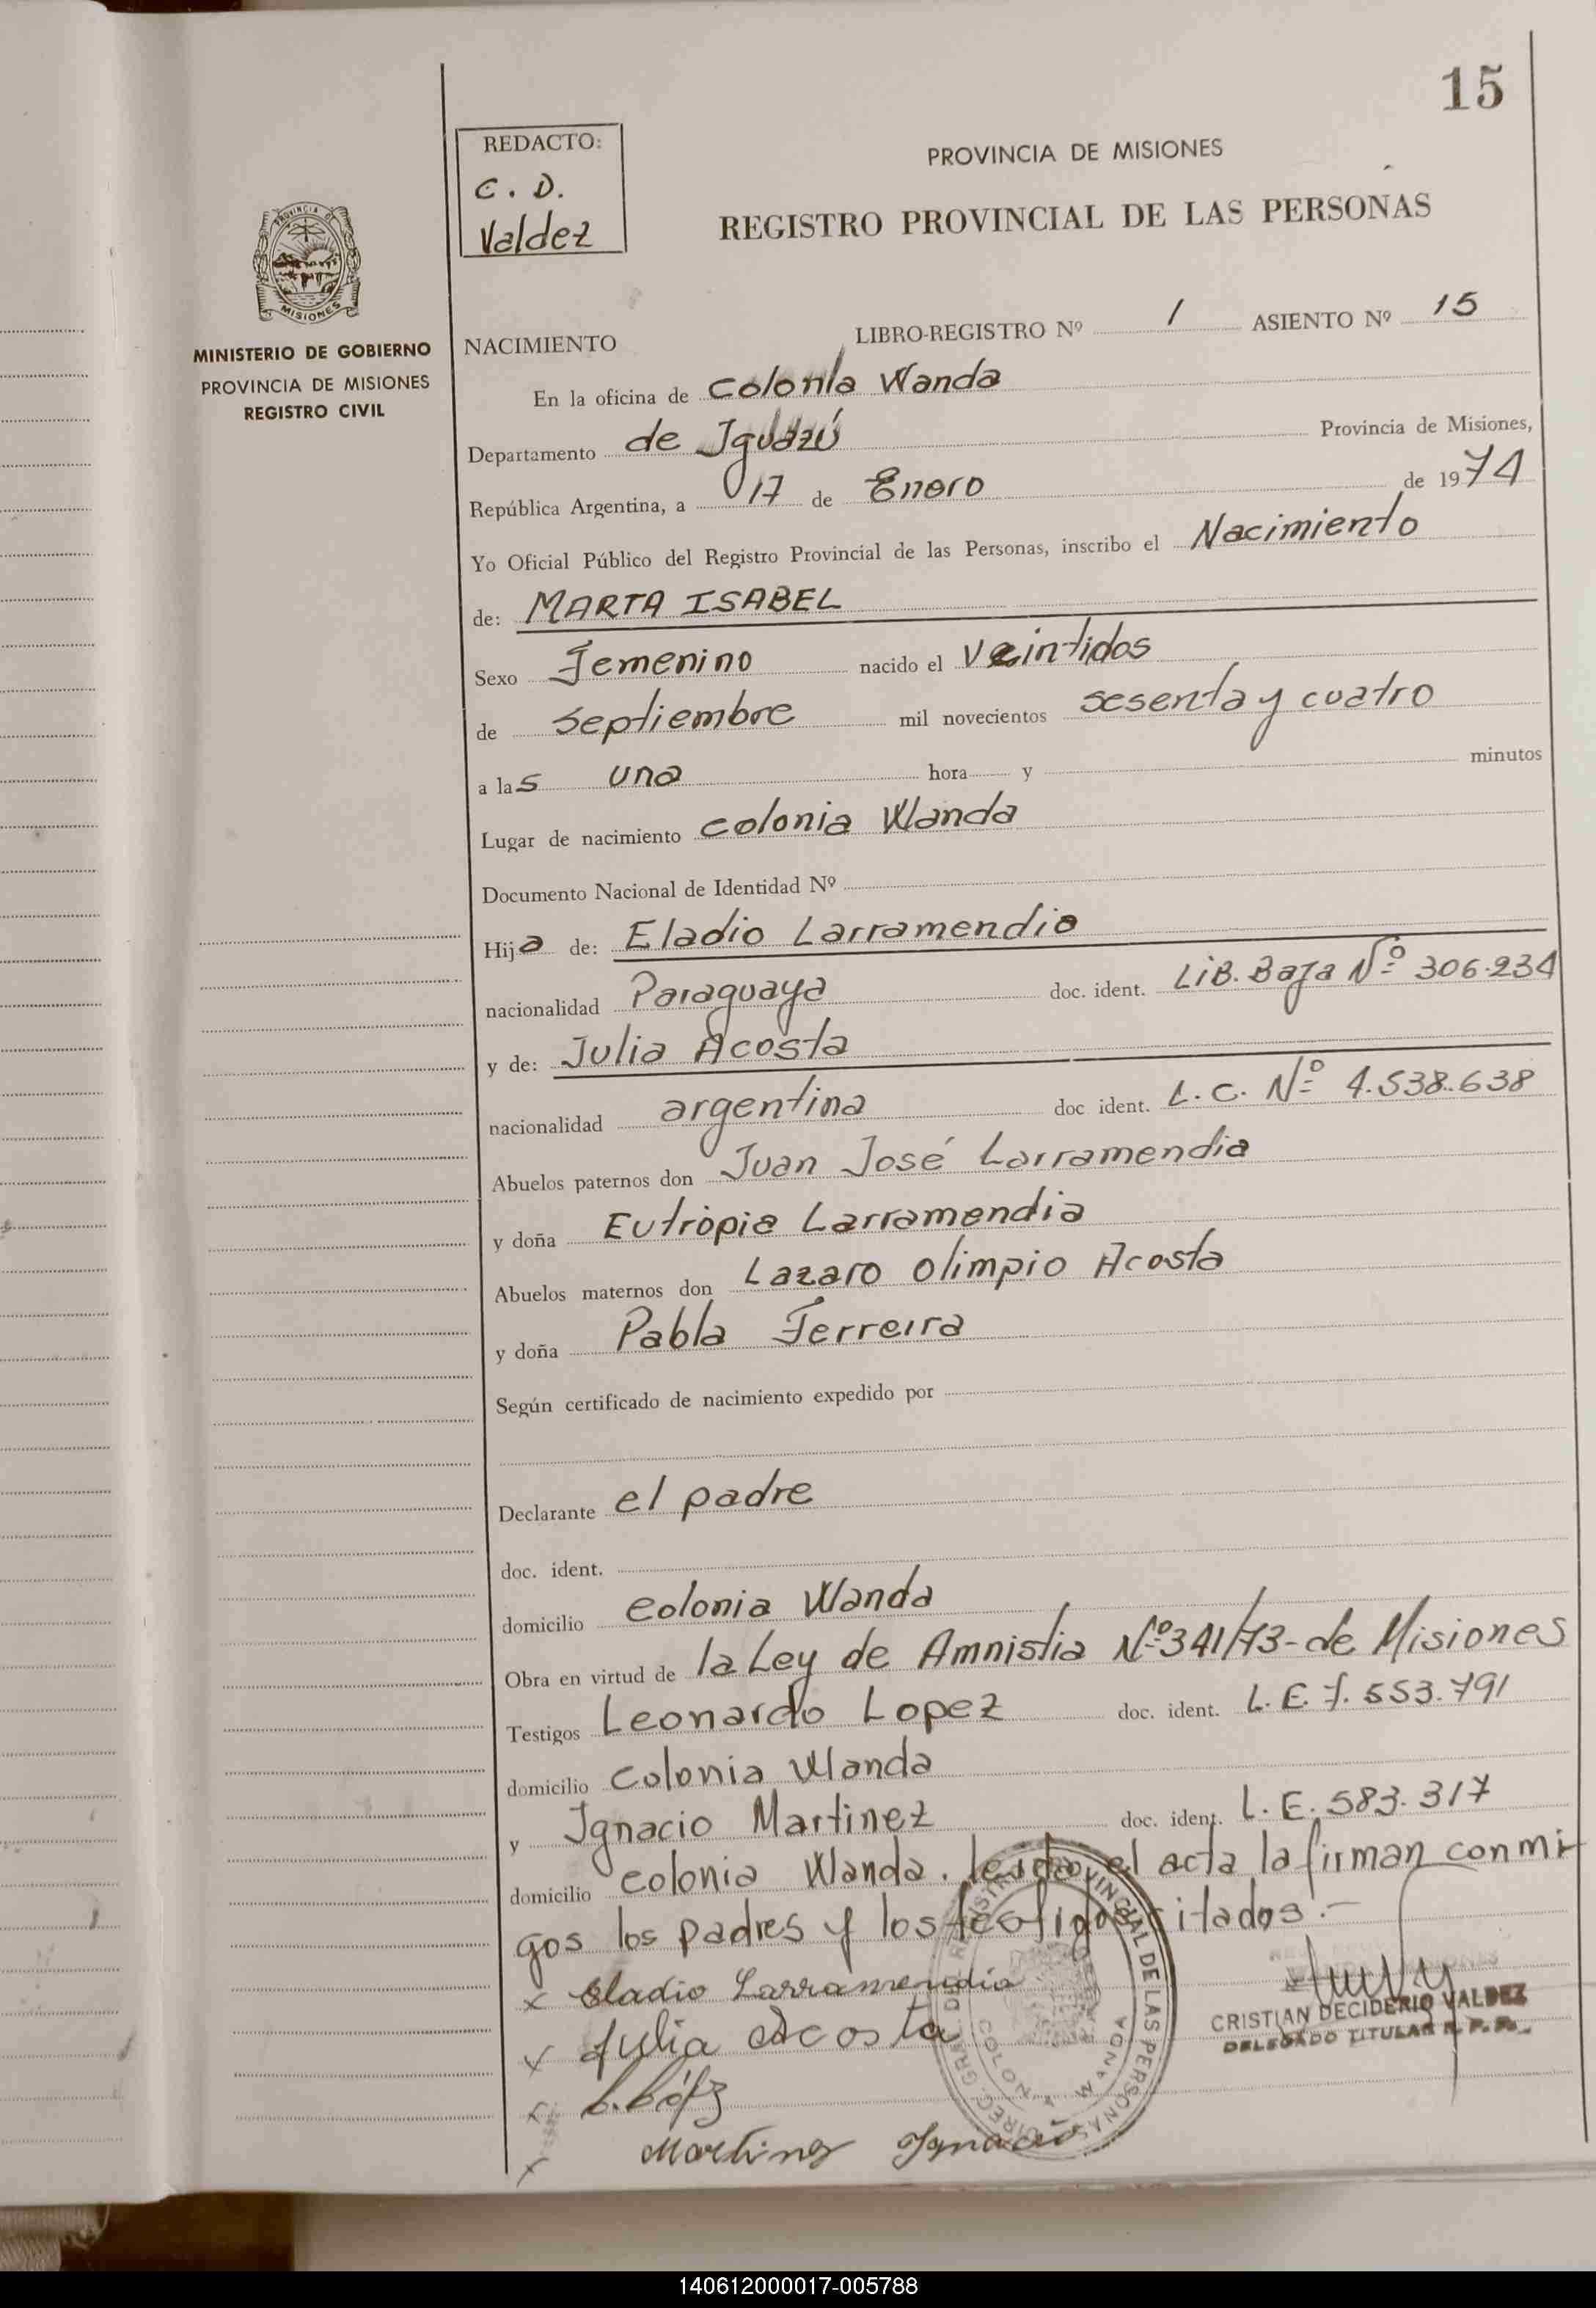 15
REDACTO:
C. D.
Valdez
PROVINCIA DE MISIONES
REGISTRO PROVINCIAL DE LAS PERSONAS
PROVINCIA DE
MISIONES
MINISTERIO DE GOBIERNO
PROVINCIA DE MISIONES
REGISTRO CIVIL
NACIMIENTO LIBRO-REGISTRO Nº 1 ASIENTO Nº 15
En la oficina de Colonia Wanda
Departamento de Iguazú Provincia de Misiones,
República Argentina, a 17 de Enero de 1974
Yo Oficial Público del Registro Provincial de las Personas, inscribo el Nacimiento
de: MARTA ISABEL
Sexo Femenino nacido el Veintidos
de Septiembre mil novecientos sesenta y cuatro
a las una hora y minutos
Lugar de nacimiento colonia Wanda
Documento Nacional de Identidad Nº
Hija de: Eladio Larramendia
nacionalidad Paraguaya doc. ident. LIB. Baja Nº 306.234
y de: Julia Acosta
nacionalidad argentina doc ident. L. C. Nº 4.538.638
Abuelos paternos don Juan José Larramendia
y doña Eutropia Larramendia
Abuelos maternos don Lazaro Olimpio Acosta
y doña Pabla Ferreira
Según certificado de nacimiento expedido por
Declarante el padre
doc. ident.
domicilio colonia Wanda
Obra en virtud de la Ley de Amnistia Nº 341/73- de Misiones
Testigos Leonardo Lopez doc. ident. L. E. 7. 553. 791
domicilio colonia Wanda
y Ignacio Martinez doc. ident. L. E. 583. 317
domicilio colonia Wanda. leida el acta la firman conmi-
gos los padres y los testigos citados.-
x Eladio Larramendia
x Julia Acosta
x L. López
x Martinez Ignacio
DIREC. GRAL. DEL REGISTRO PROVINCIAL DE LAS PERSONAS
COLONIA WANDA
CRISTIAN DECIDERIO VALDEZ
DELEGADO TITULAR R. P. P.
140612000017-005788